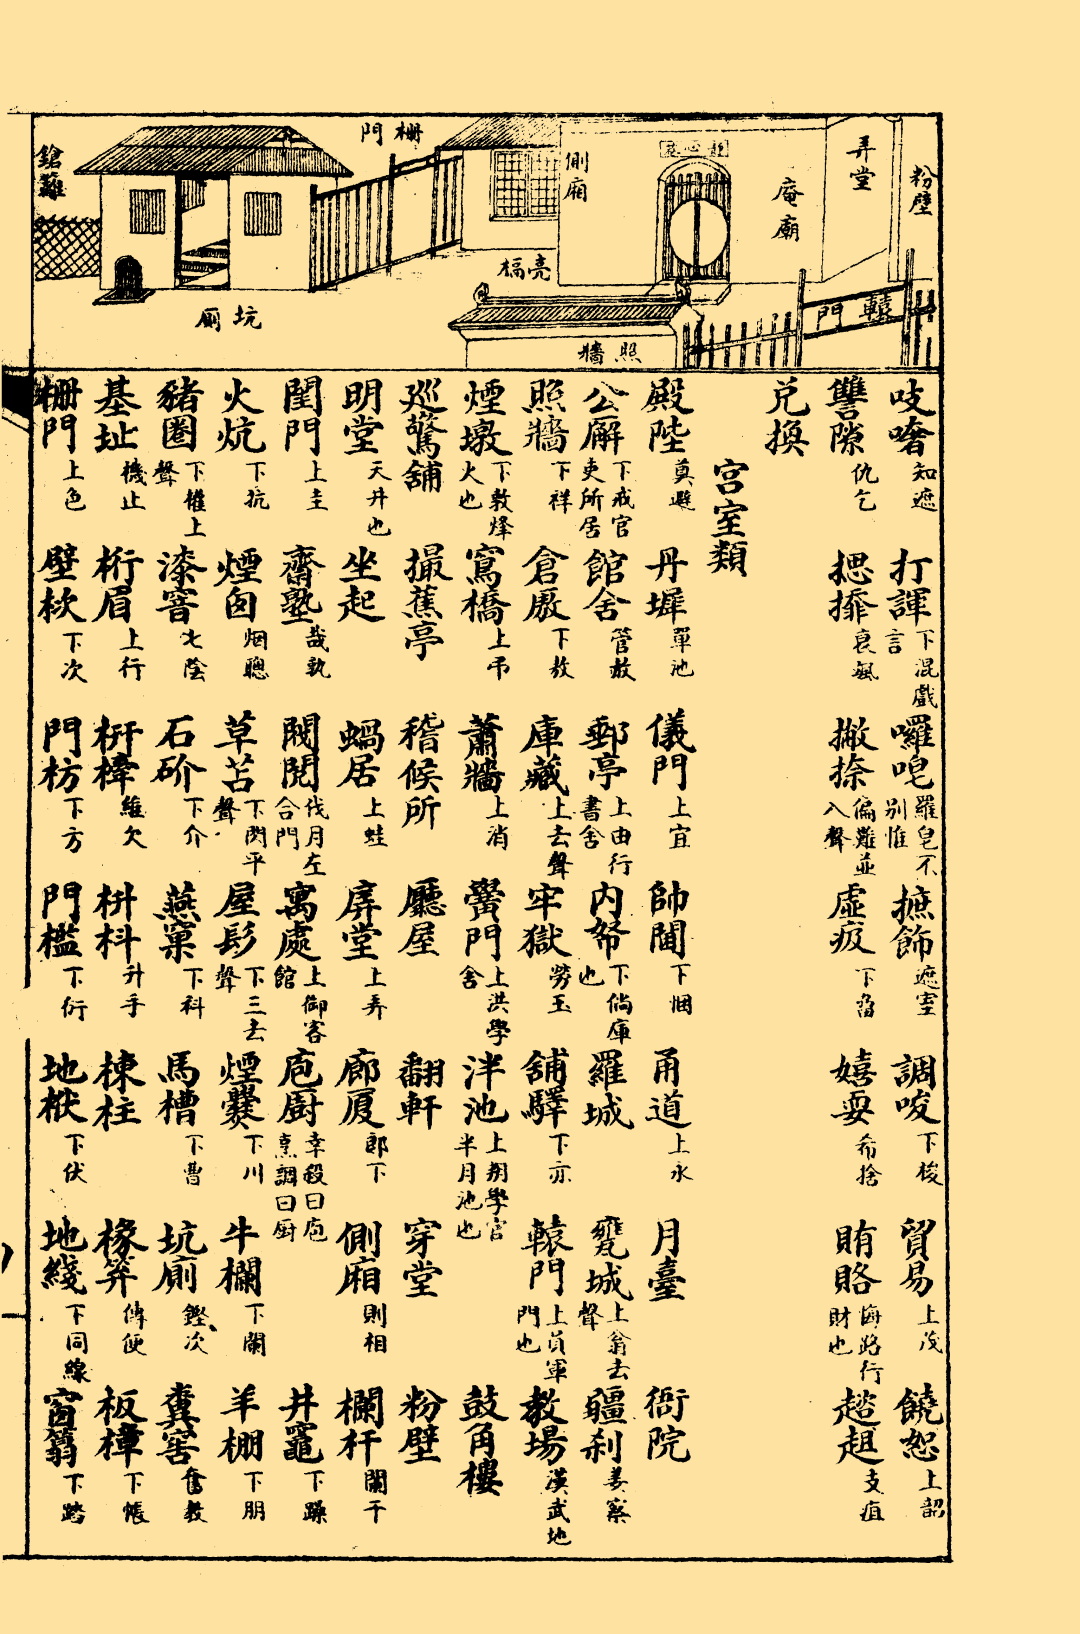 粉壁
弄堂
庵廟
轅門
側廂
亮槅
照牆
柵門
坑廁
鎗籬
吱嗻知遮 打諢下混戲言 囉唣羅皂不別惟 摭飾遮室 調唆下梭 貿易上茂 饒恕上韶
讐隙仇乞 撇捺偏難並入聲 嬉耍希捨 賄賂悔路行財也 趑趄支疽
兌換
宮室類
殿陛奠避 丹墀單池 儀門上宜 帥閫下悃 甬道上永 月臺 衙院
公廨下戒官吏所居 館舍管赦 郵亭上由行書舍 內帑下倘庫也 羅城 甕城上翁去聲 疆刹姜察
照牆下祥 倉廒下敖 庫藏上去聲 牢獄勞玉 舖驛下亦 轅門上員軍門也 教場漢武地
煙墩下敦烽火也 窵橋上吊 蕭牆上消 黌門上洪學舍 泮池上判學宮半月池也 鼓角樓
巡警舖 撮蕉亭 稽候所 廳屋 翻軒 穿堂 粉壁
明堂天井也 坐起 蝸居上蛙 屏堂上弄 廊厦郎下 側廂則相 欄杆闌干
閨門上圭 齋塾哉孰 閥閱伐月左合門 寓處上御客館 庖厨宰殺曰庖烹調曰厨 井竈下躁
火炕下抗 煙囱烟聰 草苫下閃平聲 屋髟下三去聲 煙爨下川 牛欄下闌 羊棚下朋
豬圈下權上聲 漆窨七蔭 石砎下介 燕窠下科 馬槽下曹 坑廁鏗次 糞窖奮教
基址機止 桁眉上行 枡枓升手 棟柱 椽 傳便 板樟下帳
柵門上色 壁栨下次 門枋下方 門檻下衍 地栿下伏 地綫下同線 窗 下踏